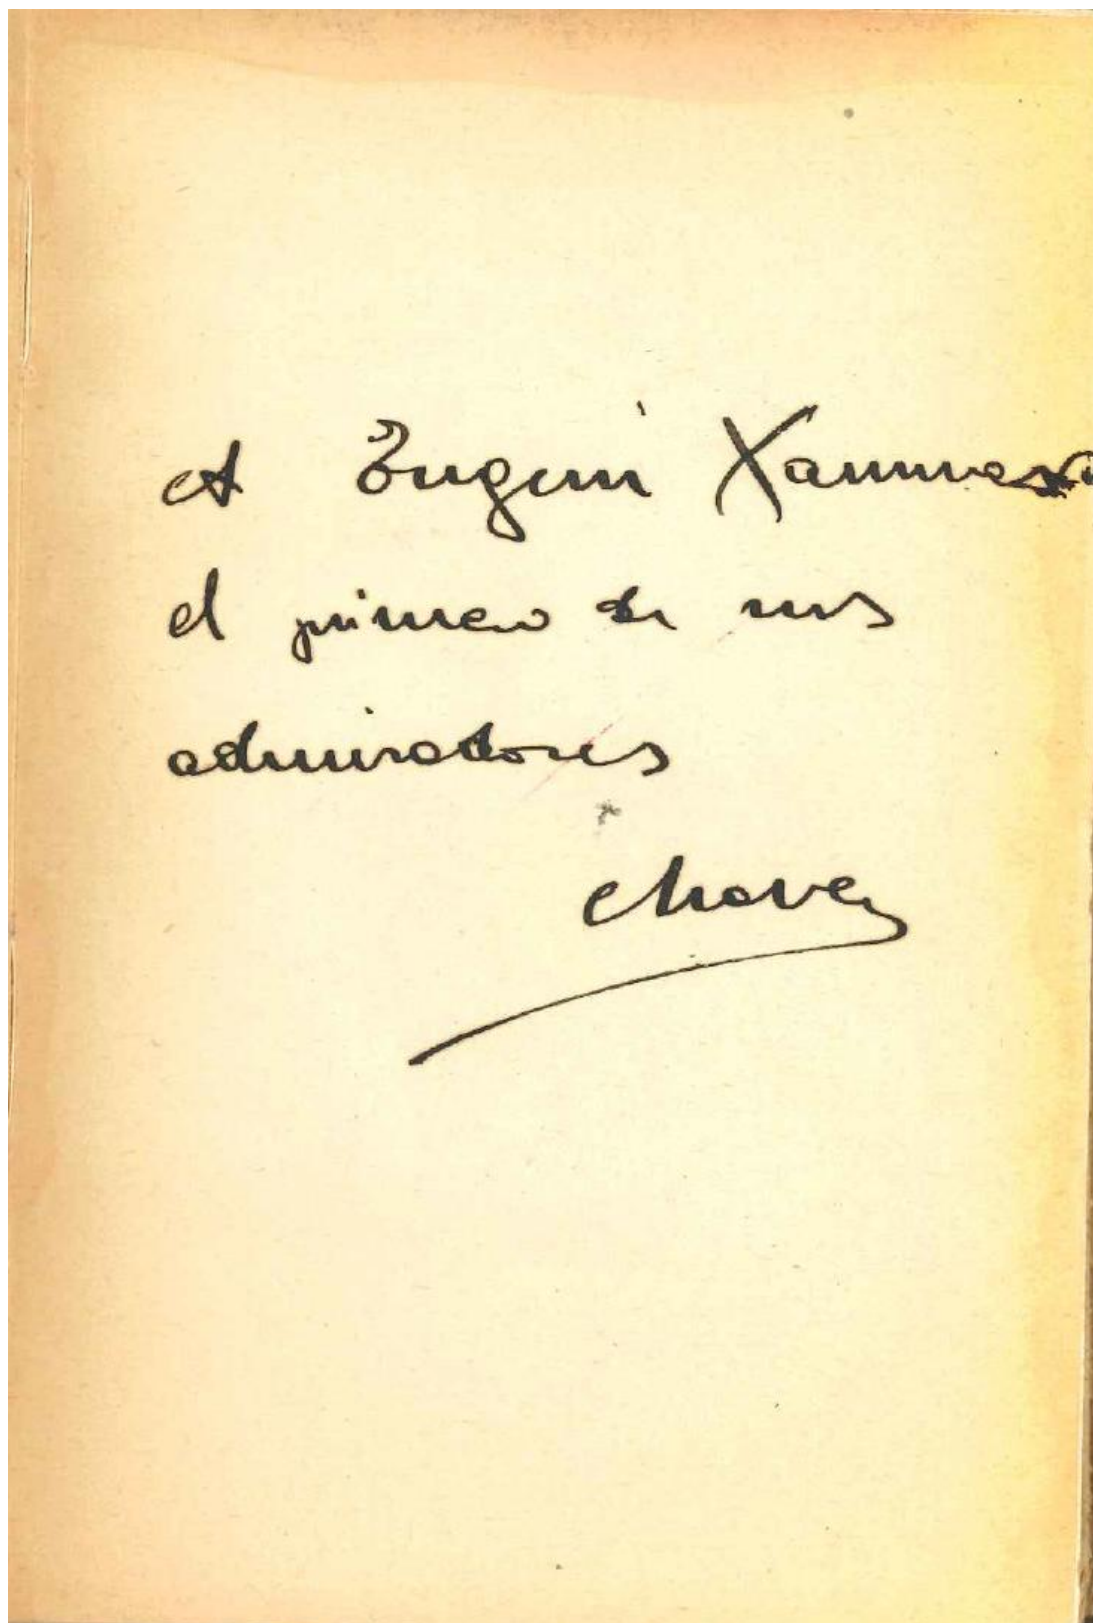 A Eugeni Xammar
el primero de mis
admiradores
Chaves